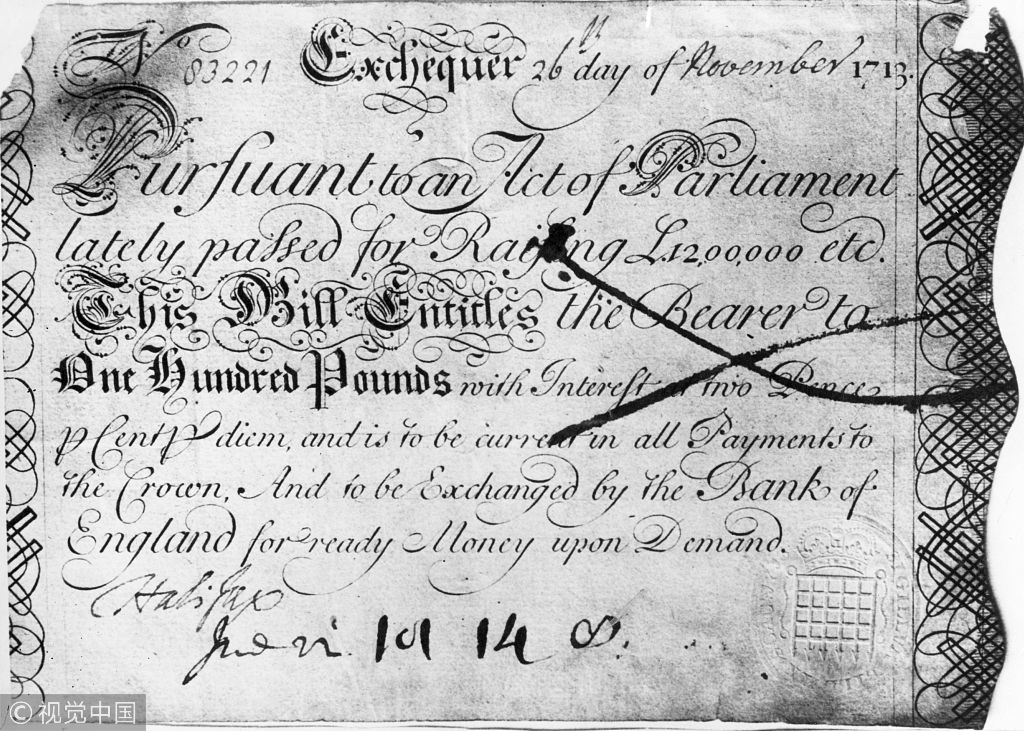 No 83221 Exchequer 26th day of November 1713.
Purſuant to an Act of Parliament
lately paſsed for Raiſing £.12,00,000 etc.
This Bill Entitles the Bearer to
One Hundred Pounds with Interest at two Pence
p Cent p diem, and is to be current in all Payments to
the Crown, And to be Exchanged by the Bank of
England for ready Money upon Demand.
Halifax
14 8.
© 视觉中国